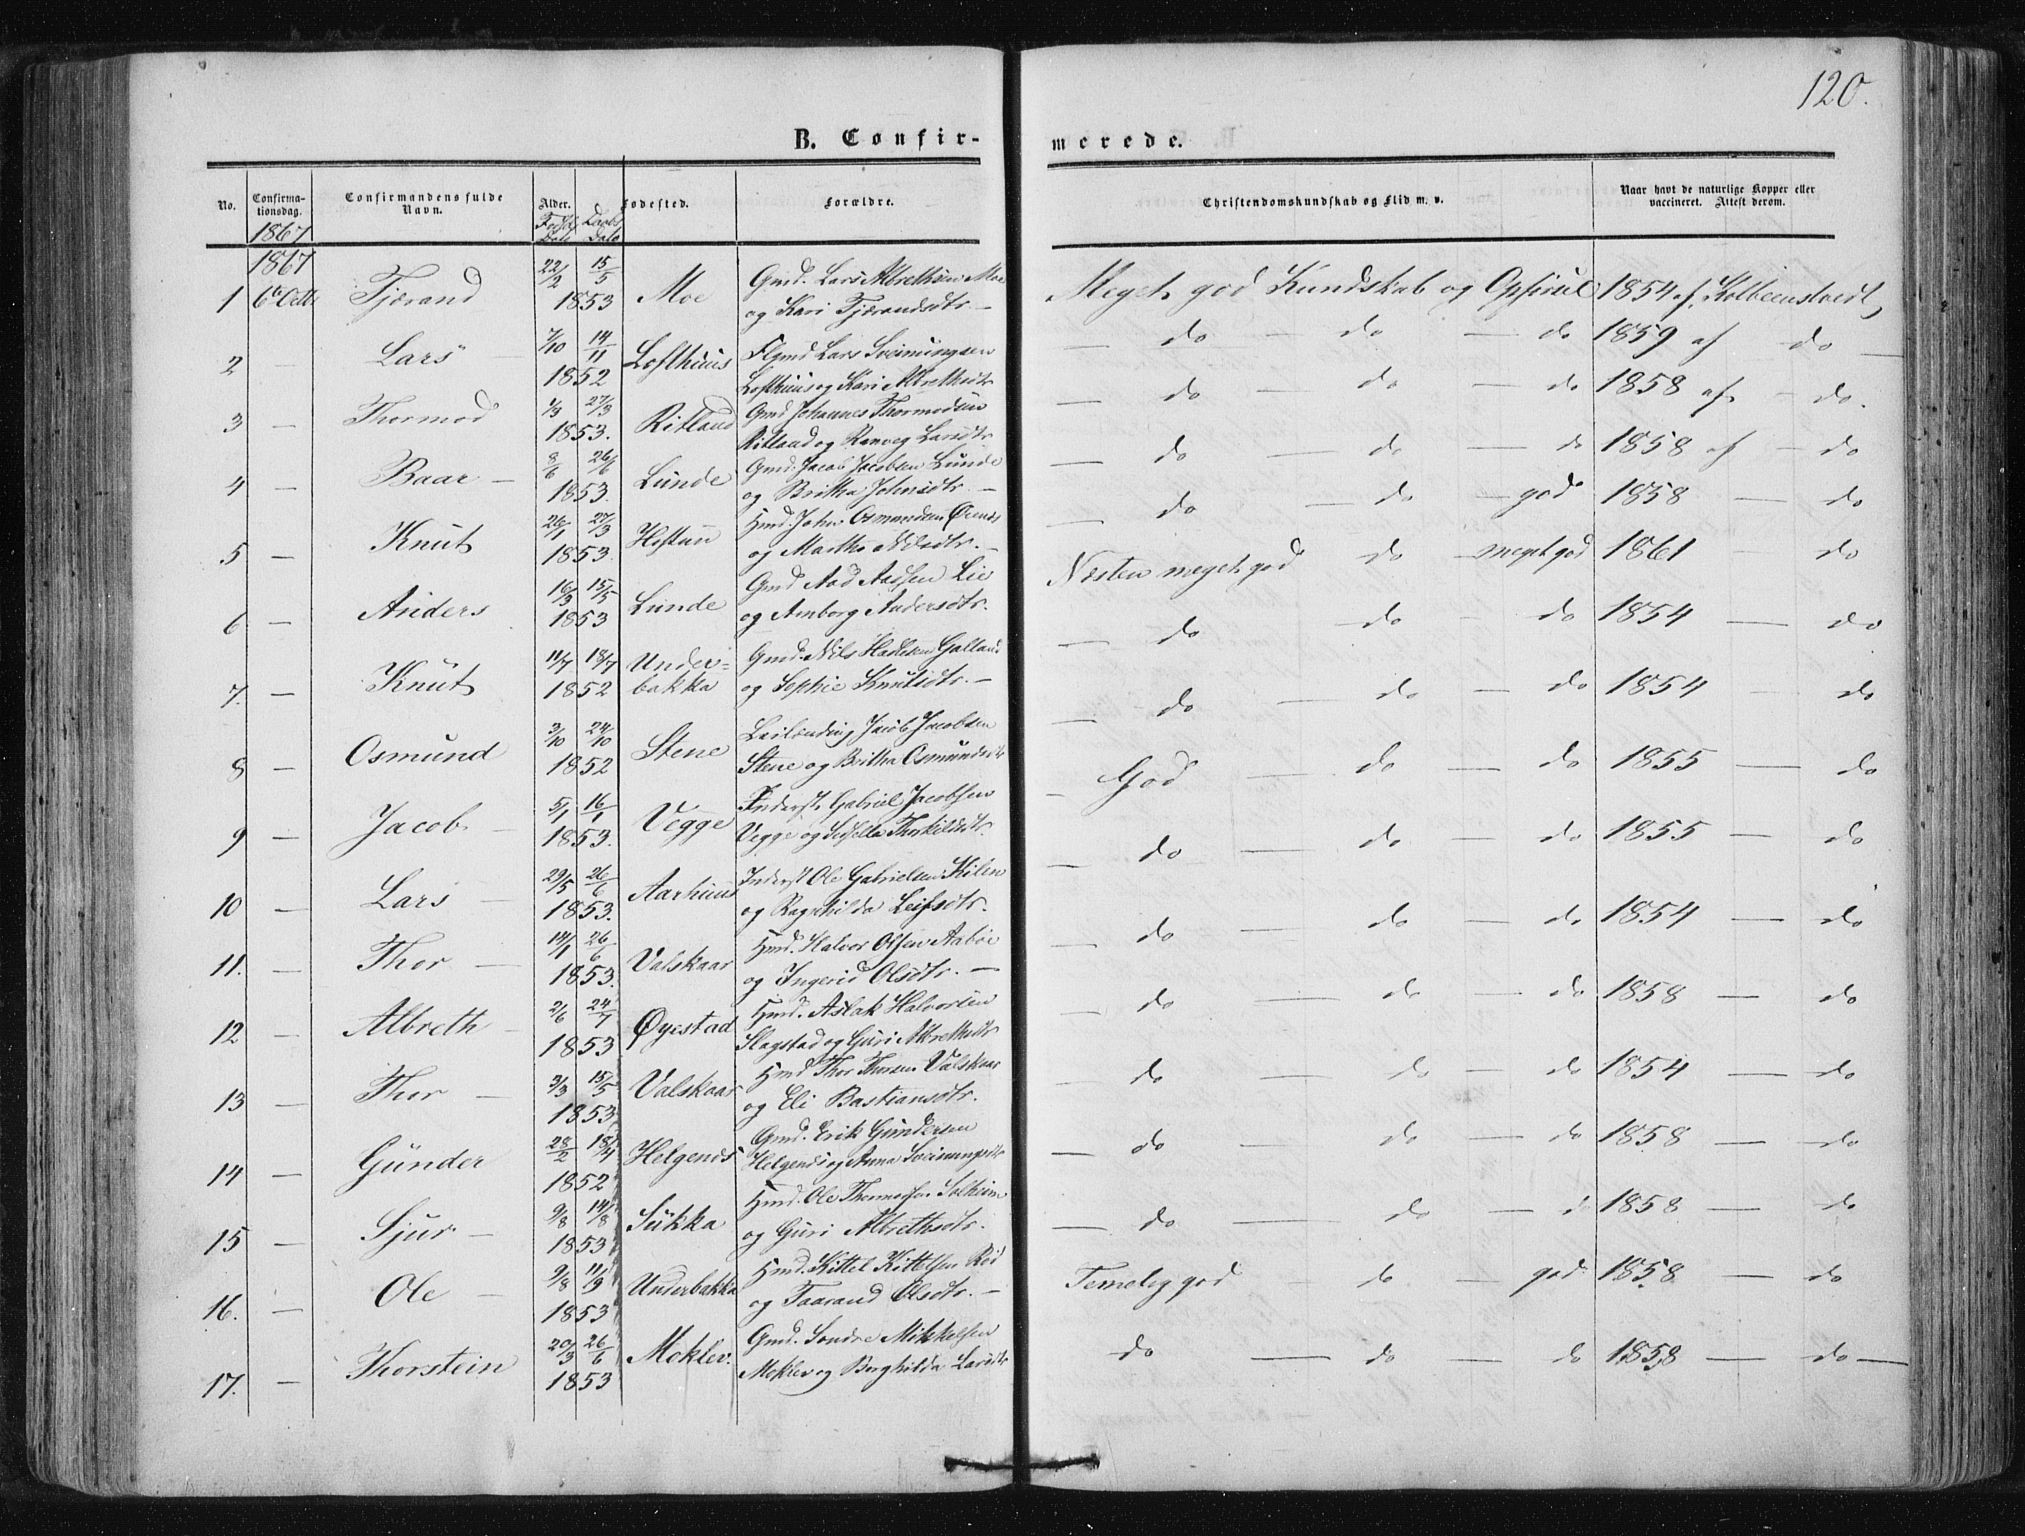 120.
B. Confir-
merede.
No.
Confirma-
tionsdag.
1867
Confirmandens fulde
Navn.
Alder.
Fødsels
Dato
Daabs
Dato
Fødested.
Forældre.
Christendomskundskab og Flid m. v.
Naar havt de naturlige Kopper eller
vaccineret. Attest derom.
1867
1 6te Octb. Tjærand 22/2 15/5 1853 Moe Gmd. Lars Albrethsen Moe
og Kari Tjærandsdtr. — Meget god Kundskab og Opførsel 1854 af Kolbeenstvedt
2 — Lars — 7/10 14/11 1852 Lofthuus Flgmd Lars Sveinungsen
Lofthuus og Kari Albrethsdtr — do — do — do 1859 af do —
3 — Thormod 1/3 27/3 1853. Ritland Gmd Johannes Thormodsen
Ritland og Ranveg Larsdtr — do — do — do 1858 af — do.
4 — Baar — 8/6 26/6 1853. Lunde Gmd. Jacob Jacobsen Lunde
og Britha Johnsdtr. — — do — do — do 1858 af — do
5 — Knut 26/1 27/3 1853. Hestun Hmd. John Osmundsen
og Martha Nilsdtr. — — do — do — god 1858 — do
6 — Anders 16/3 15/5 1853 Lunde Gmd Aad Aadsen Lie
og Amborg Andersdtr. Næsten meget god do — meget god 1861 — do
7. — Knut 11/7 18/7 1852 Under=
bakka Gmd. Nils Hadlesen Galland
og Sophie Knutsdtr. — — do do — do 1854 — do
8 — Osmund 3/10 24/10 1852 Stene Leilænding Jacob Jacobsen
Stene og Britha Osmundsdtr — do — do — do 1854 — do
9 — Jacob — 5/1 16/1 1853. Vegge Inderst. Gabriel Jacobsen
Vegge og Sissella Thorkildsdtr. — God — do — do 1855 — do
10 — Lars — 29/5 26/6 1853. Aarhuus Inderst Ole Gabrielsen Kilen
og Ragnhilda Leifsdtr. — do — do — do 1855 — do
11. — Thor — 14/1 26/6 1853. Valskaar Hmd. Halvor Olsen Aabøe
og Ingerid Olsdtr. — — do — do — do 1854 — do
12 — Albreth — 2/6 24/7 1853 Øyestad Hmd. Aslak Halvorsen
Slagstad og Guri Albrethsdtr — do — do — do 1858 — do
13 — Thor — 3/3 15/5 1853 Valskaar Hmd Thor Thorsen Valskaar
og Eli Bastiansdtr. do — do — do 1854 — do
14 — Gunder 28/2 18/4 1852 Helgends Gmd. Erik Gundersen
Helgends og Anna Sveinungsdtr — do — do — do 1858 — do
15 — Sjur — 9/8 14/8 1853 Sukka Hmd. Ole Thormodsen Solheim
og Guri Albrethsdtr. — do — do — do 1858 — do
16. — Ole — 9/8 11/9 1853 Underbakka Hmd. Kittel Kittelsen Rød
og Taarand Olsdtr. — Temelig god — do — god 1858 — do
17. — Thorstein 20/3 26/6 1853 Moklev. Gmd. Sondre Mikkelsen
Moklev og Borghilda Larsdtr do — do — do 1858 — do —